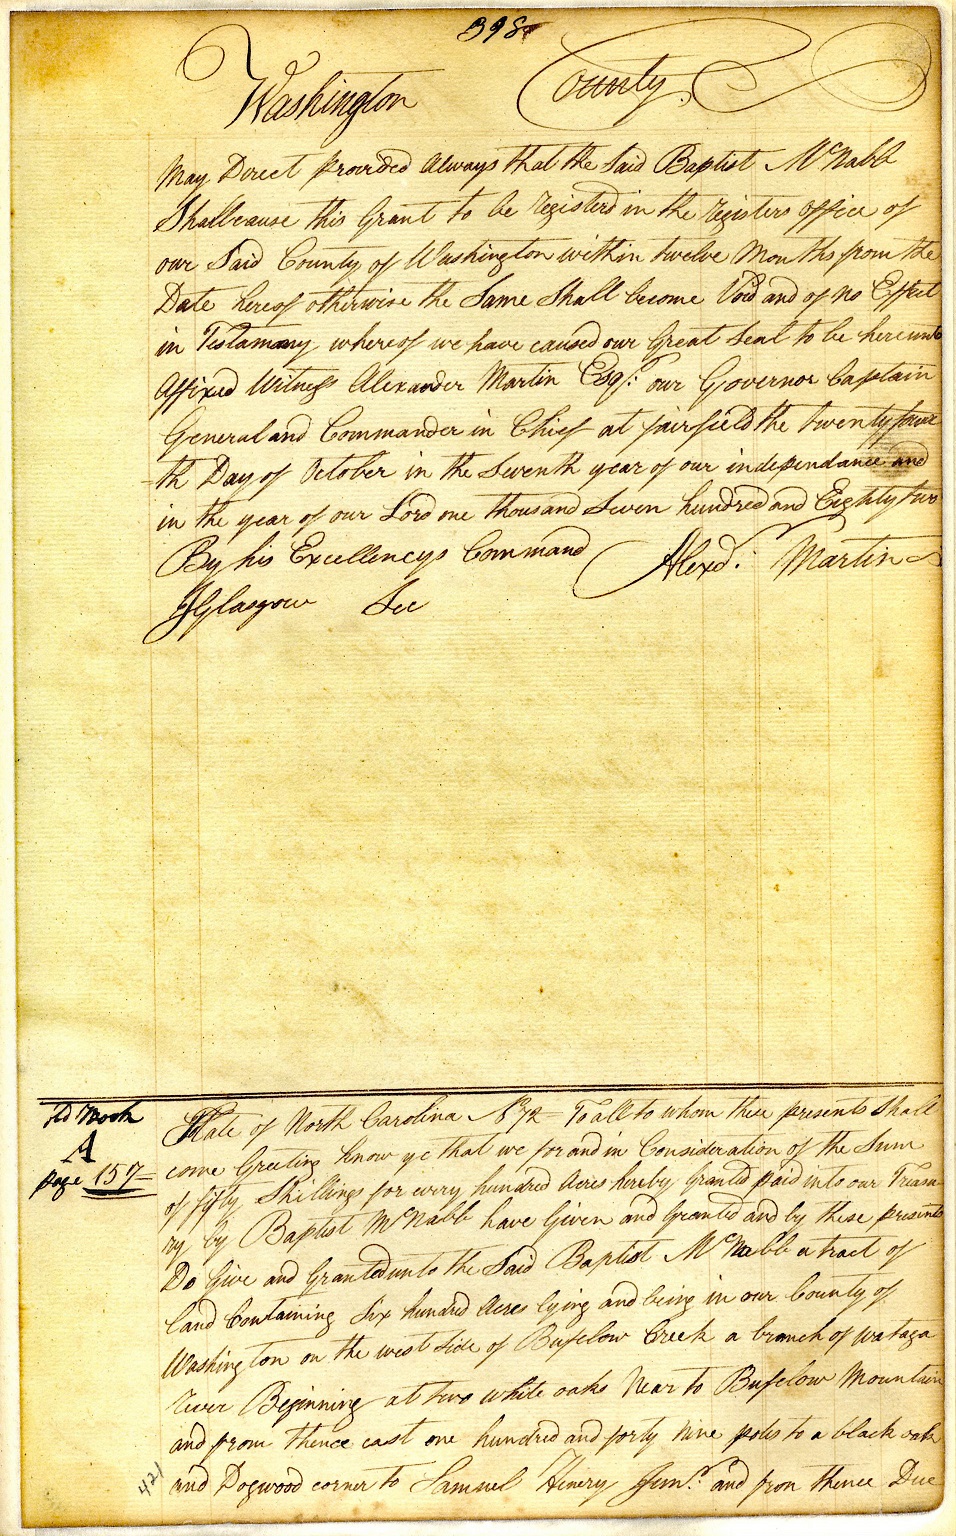 398
Washington County
May Direct provided Always that the Said Baptist McNabb
Shall cause this Grant to be Registerd in the Registers office of
our Said County of Washington within twelve Months from the
Date hereof otherwise the Same Shall become Void and of no Effect
in Testamony whereof we have caused our Great Seal to be hereunto
Affixed Witness Alexander Martin Esqr: our Governor Captain
General and Commander in Chief at fairfield the twenty four
th Day of October in the Seventh year of our independance and
in the year of our Lord one thousand Seven hundred and Eighty two
By his Excellencys Command Alexd: Martin
JGlasgow Sec
A
page 157
State of North Carolina No 72 To all to whom these presents Shall
come Greeting Know ye that we for and in Consideration of the Sum
of fifty Shillings for every hundred Acres hereby Granted paid into our Treasu
ry by Baptist McNabb have Given and Granted and by these presents
Do Give and Granted unto the Said Baptist McNabb a tract of
land Containing Six hundred Acres lying and being in our County of
Washington on the west Side of Bufelow Creek a branch of wataga
river Beginning at two white oaks Near to Bufelow Mountain
and from thence east one hundred and forty Nine poles to a black oak
and Dogwood corner to Samuel Henery Junr: and from thence Due
421